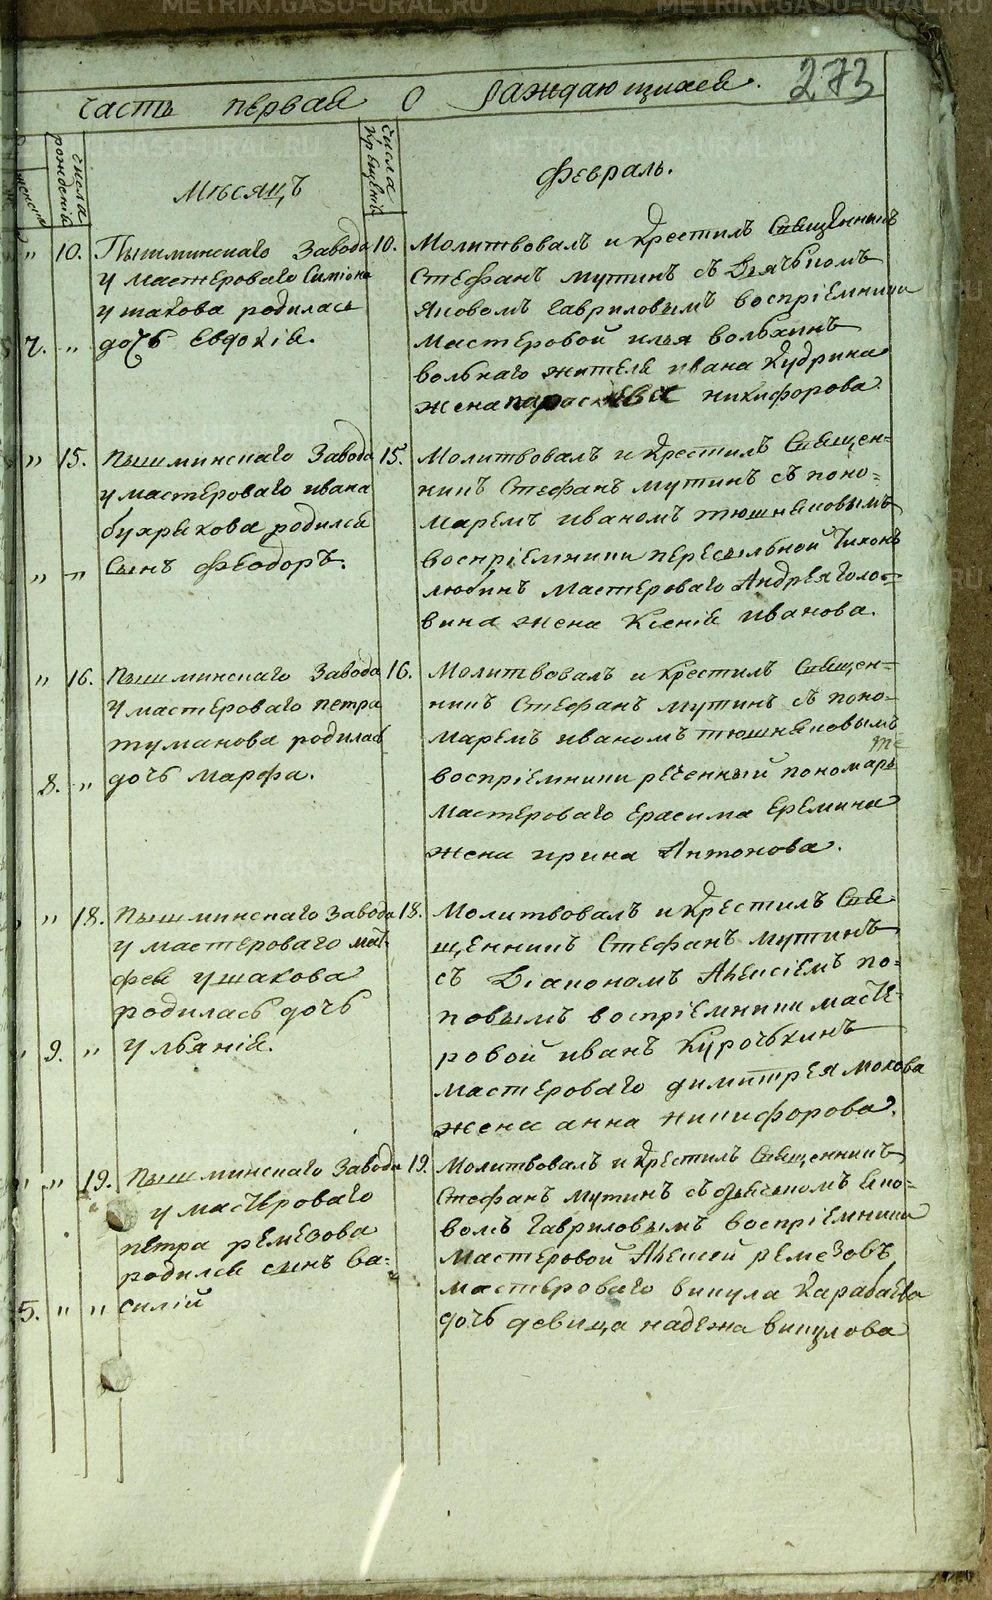 273
часть первая О раждающихся.
числа рождения
Мѣсяцъ
числа крещения
Февраль.
" 10. Пышминскаго Завода
у мастероваго Симiона
ушакова родилась
2. " дочь Евдокiя.
10. Молитвовалъ и Крестилъ Священникъ
Стефанъ мутинъ съ Дьячькомъ
Яковомъ Гавриловымъ воспрiемники
мастеровой илья волыхинъ
вольнаго жителя ивана Кудрина
жена параскева никифорова
" 15. пышминскаго Завода
у мастероваго ивана
бухрякова родился
" " Сынъ Феодоръ.
15. Молитвовалъ и Крестилъ Священ=
никъ Стефанъ мутинъ съ поно=
маремъ иваномъ тюшняковымъ
воспрiемники пересыльной Тихонъ
любинъ мастероваго Андрея Голо=
вина жена Ксенiя иванова.
" 16. пышминскаго Завода
у мастероваго петра
туманова родилась
8. " дочь марфа.
16. Молитвовалъ и Крестилъ Священ=
никъ Стефанъ мутинъ съ поно=
маремъ иваномъ тюшняковымъ
воспрiемники реченный пономарь
мастероваго ерасима еремина
жена ирина Антонова.
" 18. пышминскаго Завода
у мастероваго мат=
фея ушакова
родилась дочь
9. " ульянiя.
18. Молитвовалъ и Крестилъ Свя=
щенникъ Стефанъ мутинъ
съ Дiакономъ Алексiемъ по=
повымъ воспрiемники масте=
ровой иванъ Курочькинъ
мастероваго димитрея мохова
жена анна никифорова.
" 19. пышминскаго Завода
у мастероваго
петра ремезова
родился сынъ ва=
5. " " силiй
19. Молитвовалъ и Крестилъ Священникъ
Стефанъ мутинъ съ дьячькомъ яко=
вомъ Гавриловымъ воспрiемники
мастеровой Алексей ремезовъ
мастероваго викула Карабаева
дочь девица надежа викулова